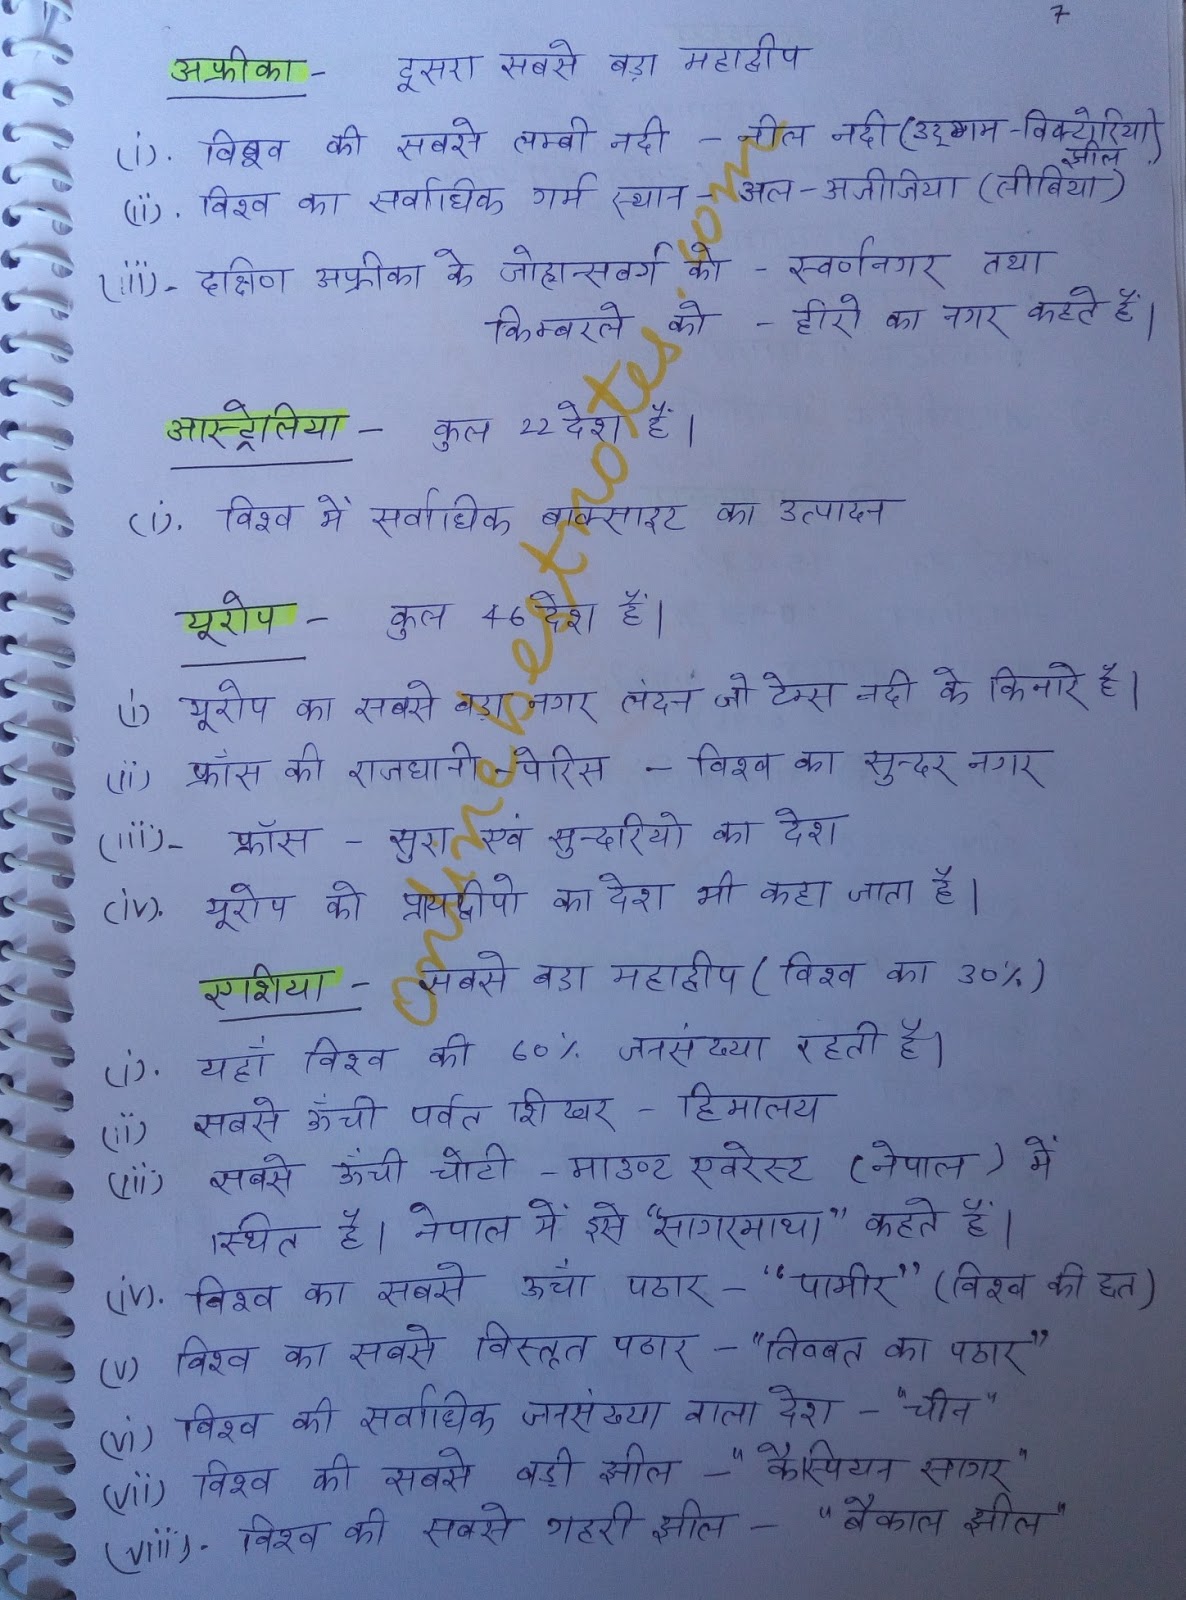 7
अफ्रीका - दूसरा सबसे बड़ा महाद्वीप
(i). विश्व की सबसे लम्बी नदी - नील नदी (उद्गम - विक्टोरिया झील)
(ii). विश्व का सर्वाधिक गर्म स्थान - अल-अजीजिया (लीबिया)
(iii)- दक्षिण अफ्रीका के जोहान्सबर्ग को - स्वर्णनगर तथा
किम्बरले को - हीरो का नगर कहते हैं।
आस्ट्रेलिया - कुल 22 देश हैं।
(i). विश्व में सर्वाधिक बाक्साइट का उत्पादन
यूरोप - कुल 46 देश हैं।
(i) यूरोप का सबसे बड़ा नगर लंदन जो टेम्स नदी के किनारे है।
(ii) फ्राँस की राजधानी - पेरिस - विश्व का सुन्दर नगर
(iii)- फ्रॉस - सुरा एवं सुन्दरियो का देश
(iv). यूरोप को प्रायद्वीपो का देश भी कहा जाता है।
एशिया - सबसे बडा महाद्वीप (विश्व का 30%)
(i). यहाँ विश्व की 60% जनसंख्या रहती है।
(ii) सबसे ऊँची पर्वत शिखर - हिमालय
(iii) सबसे ऊँची चोटी - माउण्ट एवरेस्ट (नेपाल) में
स्थित है। नेपाल में इसे "सागरमाथा" कहते हैं।
(iv). विश्व का सबसे ऊँचा पठार - "पामीर" (विश्व की छत)
(v) विश्व का सबसे विस्तृत पठार - "तिब्बत का पठार"
(vi) विश्व की सर्वाधिक जनसंख्या वाला देश - "चीन"
(vii) विश्व की सबसे बड़ी झील - "कैस्पियन सागर"
(viii). विश्व की सबसे गहरी झील - "बैकाल झील"
onlinebestnotes.com